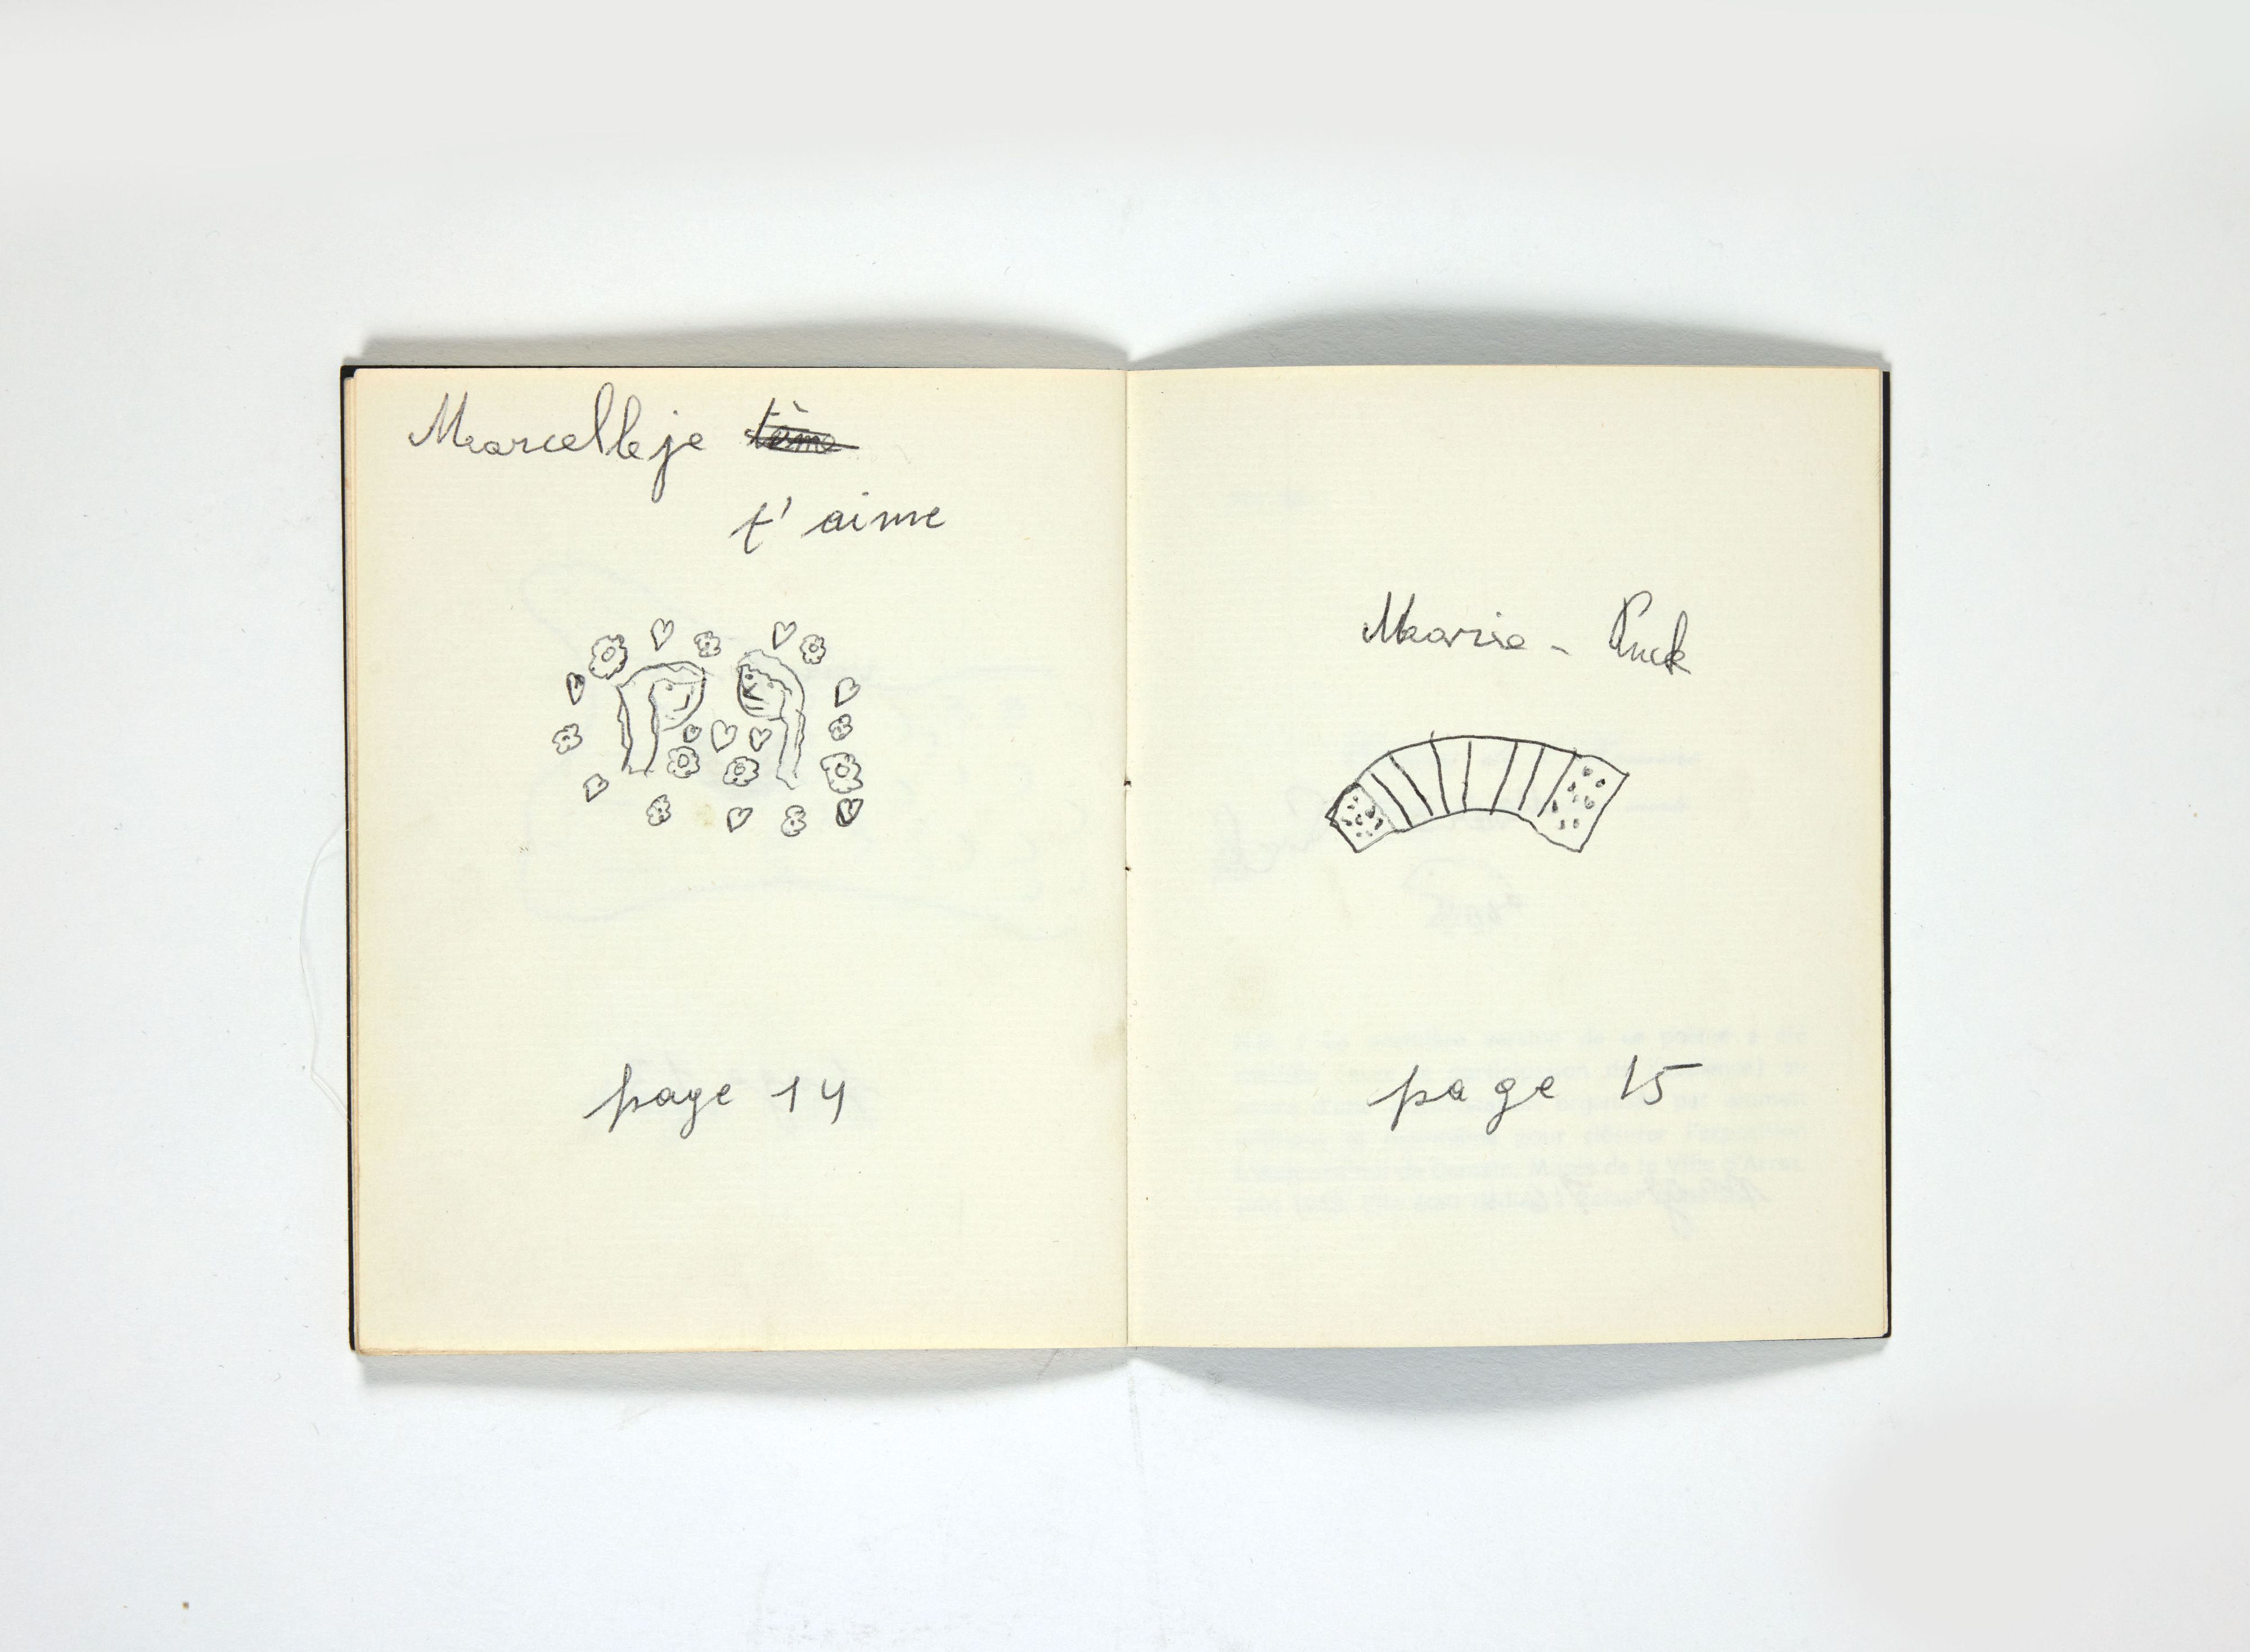 Marcelle je tème
t'aime
page 14
Marie - Puck
page 15